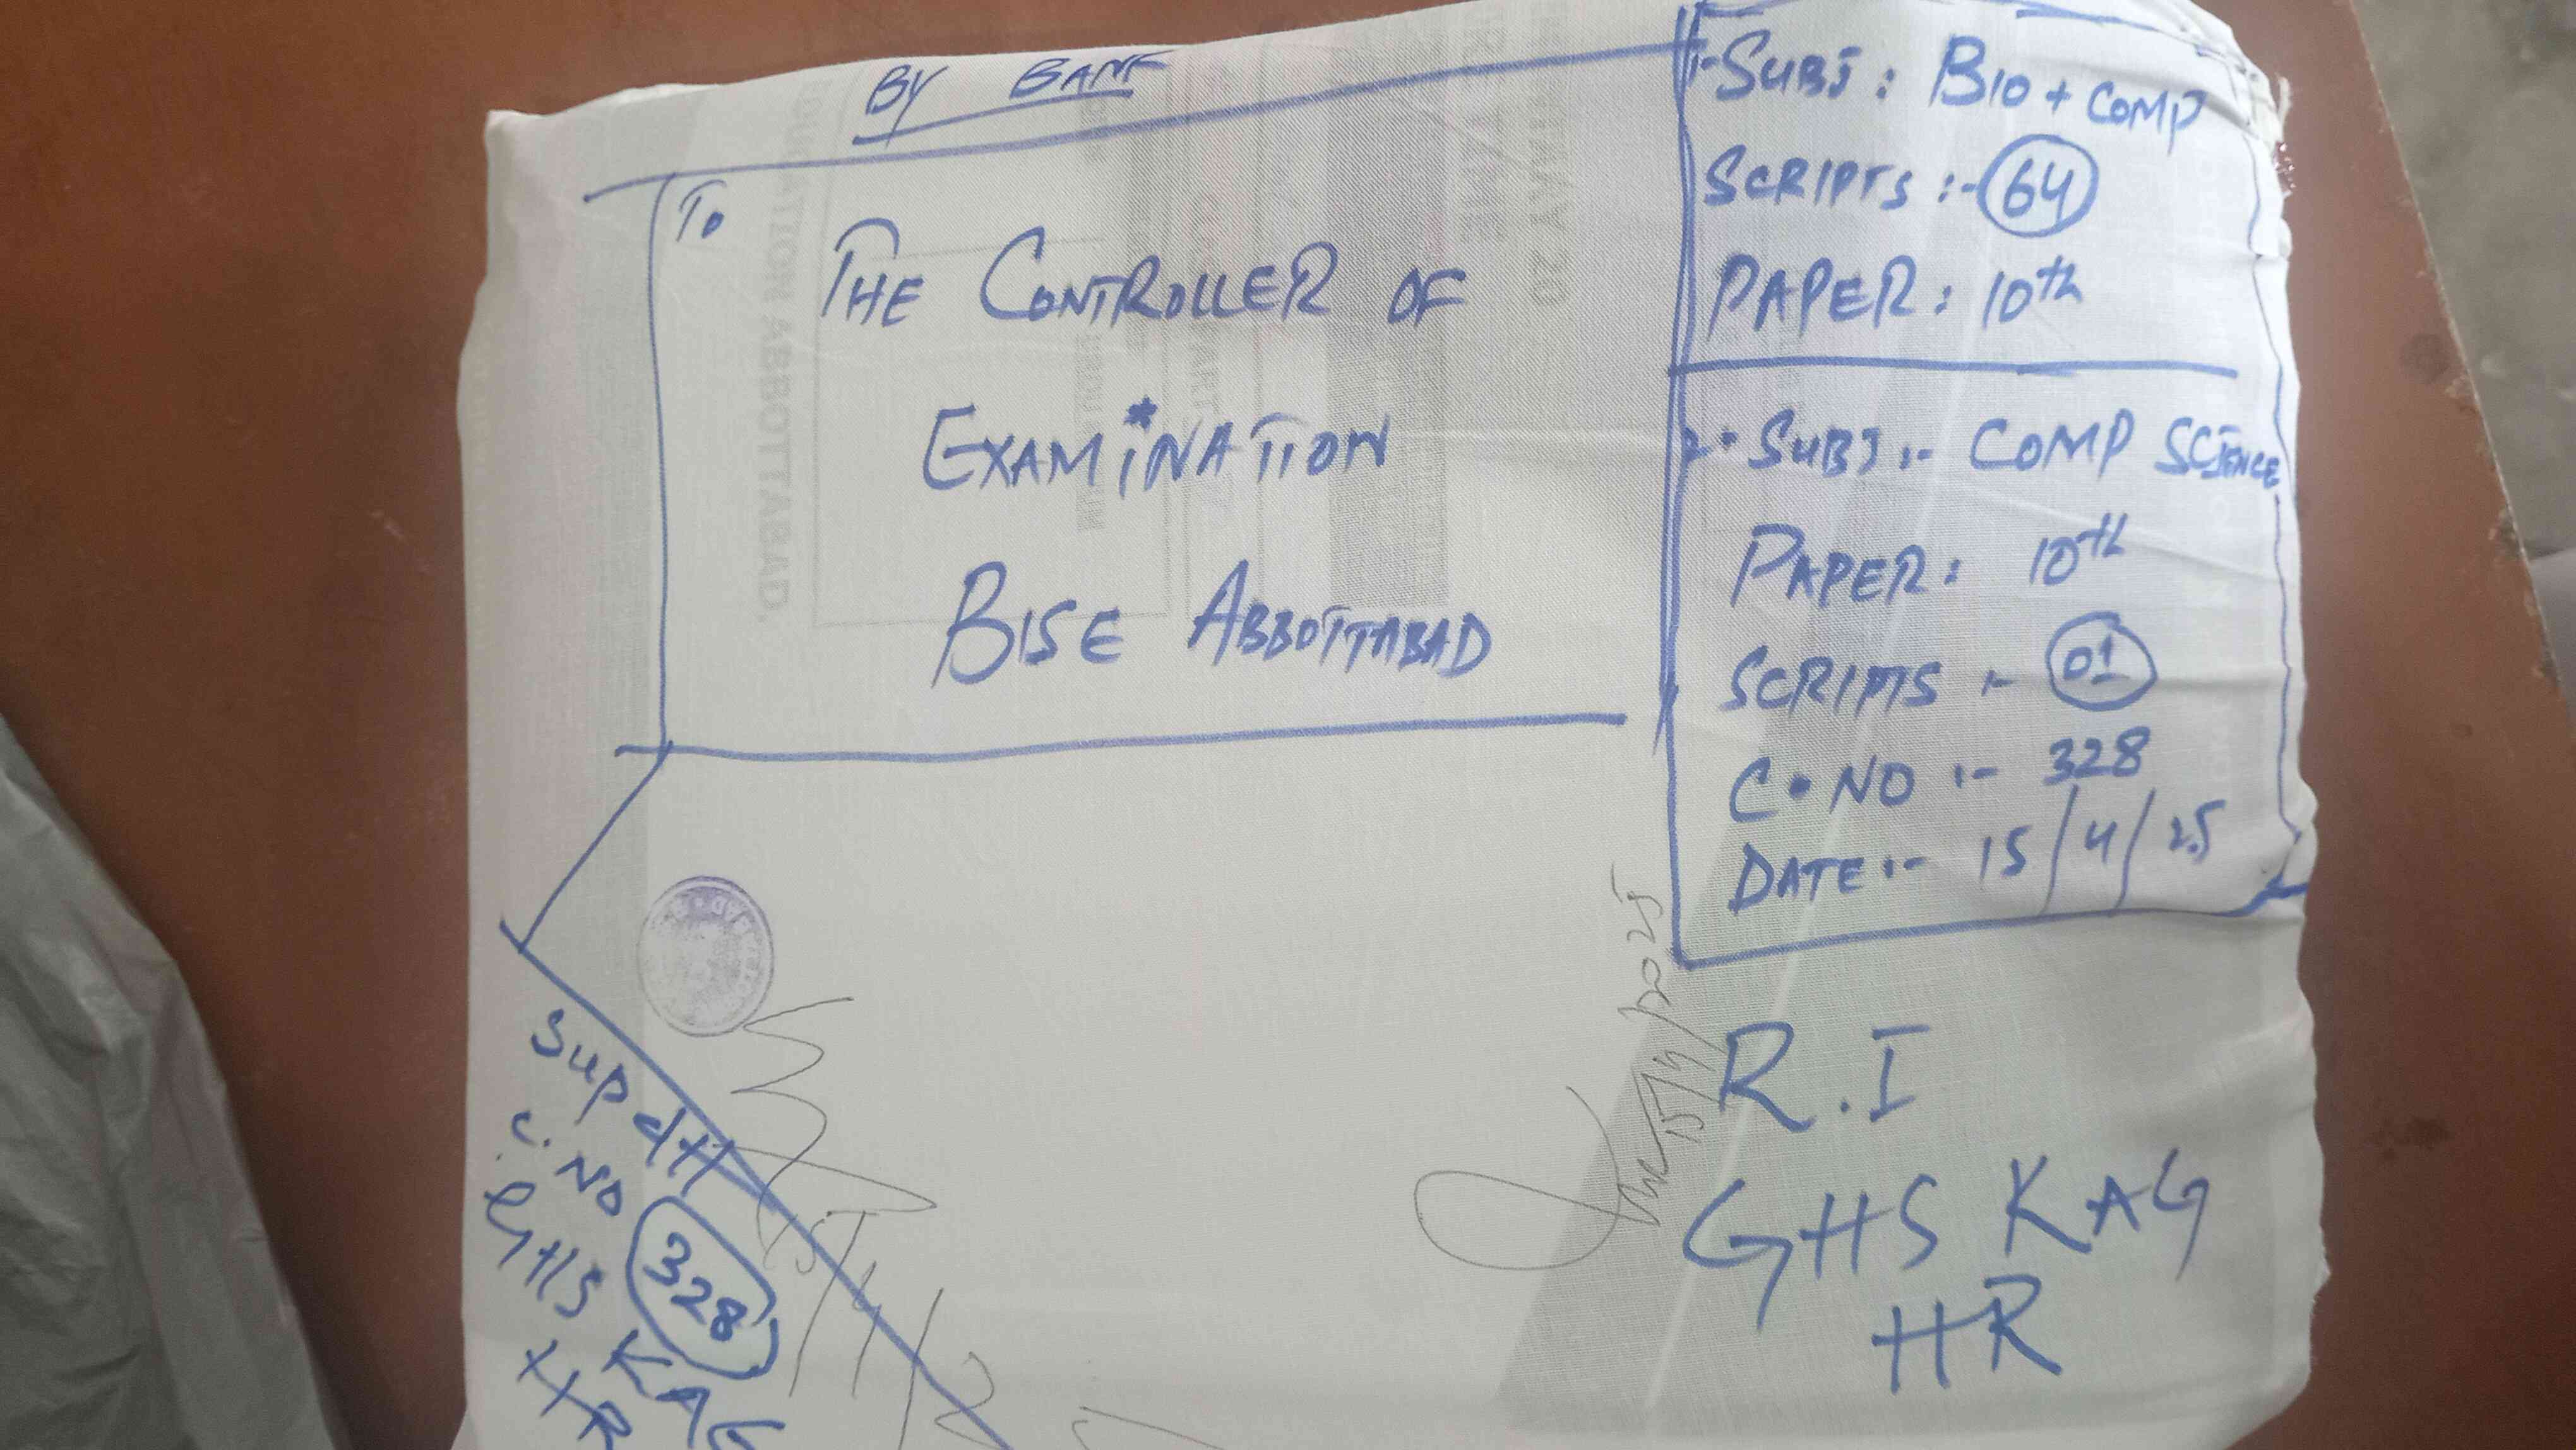 BY BANK
To
THE CONTROLLER OF
EXAMINATION
BISE ABBOTTABAD
1-SUBJ: BIO + COMP
SCRIPTS :- 64
PAPER: 10th
2. SUBJ :- COMP SCIENCE
PAPER: 10th
SCRIPTS :- 01
C. NO :- 328
DATE :- 15/4/25
R.I
GHS KAG
HR
15/4/2025
Supdtt
C. NO 328
GHS KAG
HR
EDUCATION ABBOTTABAD.